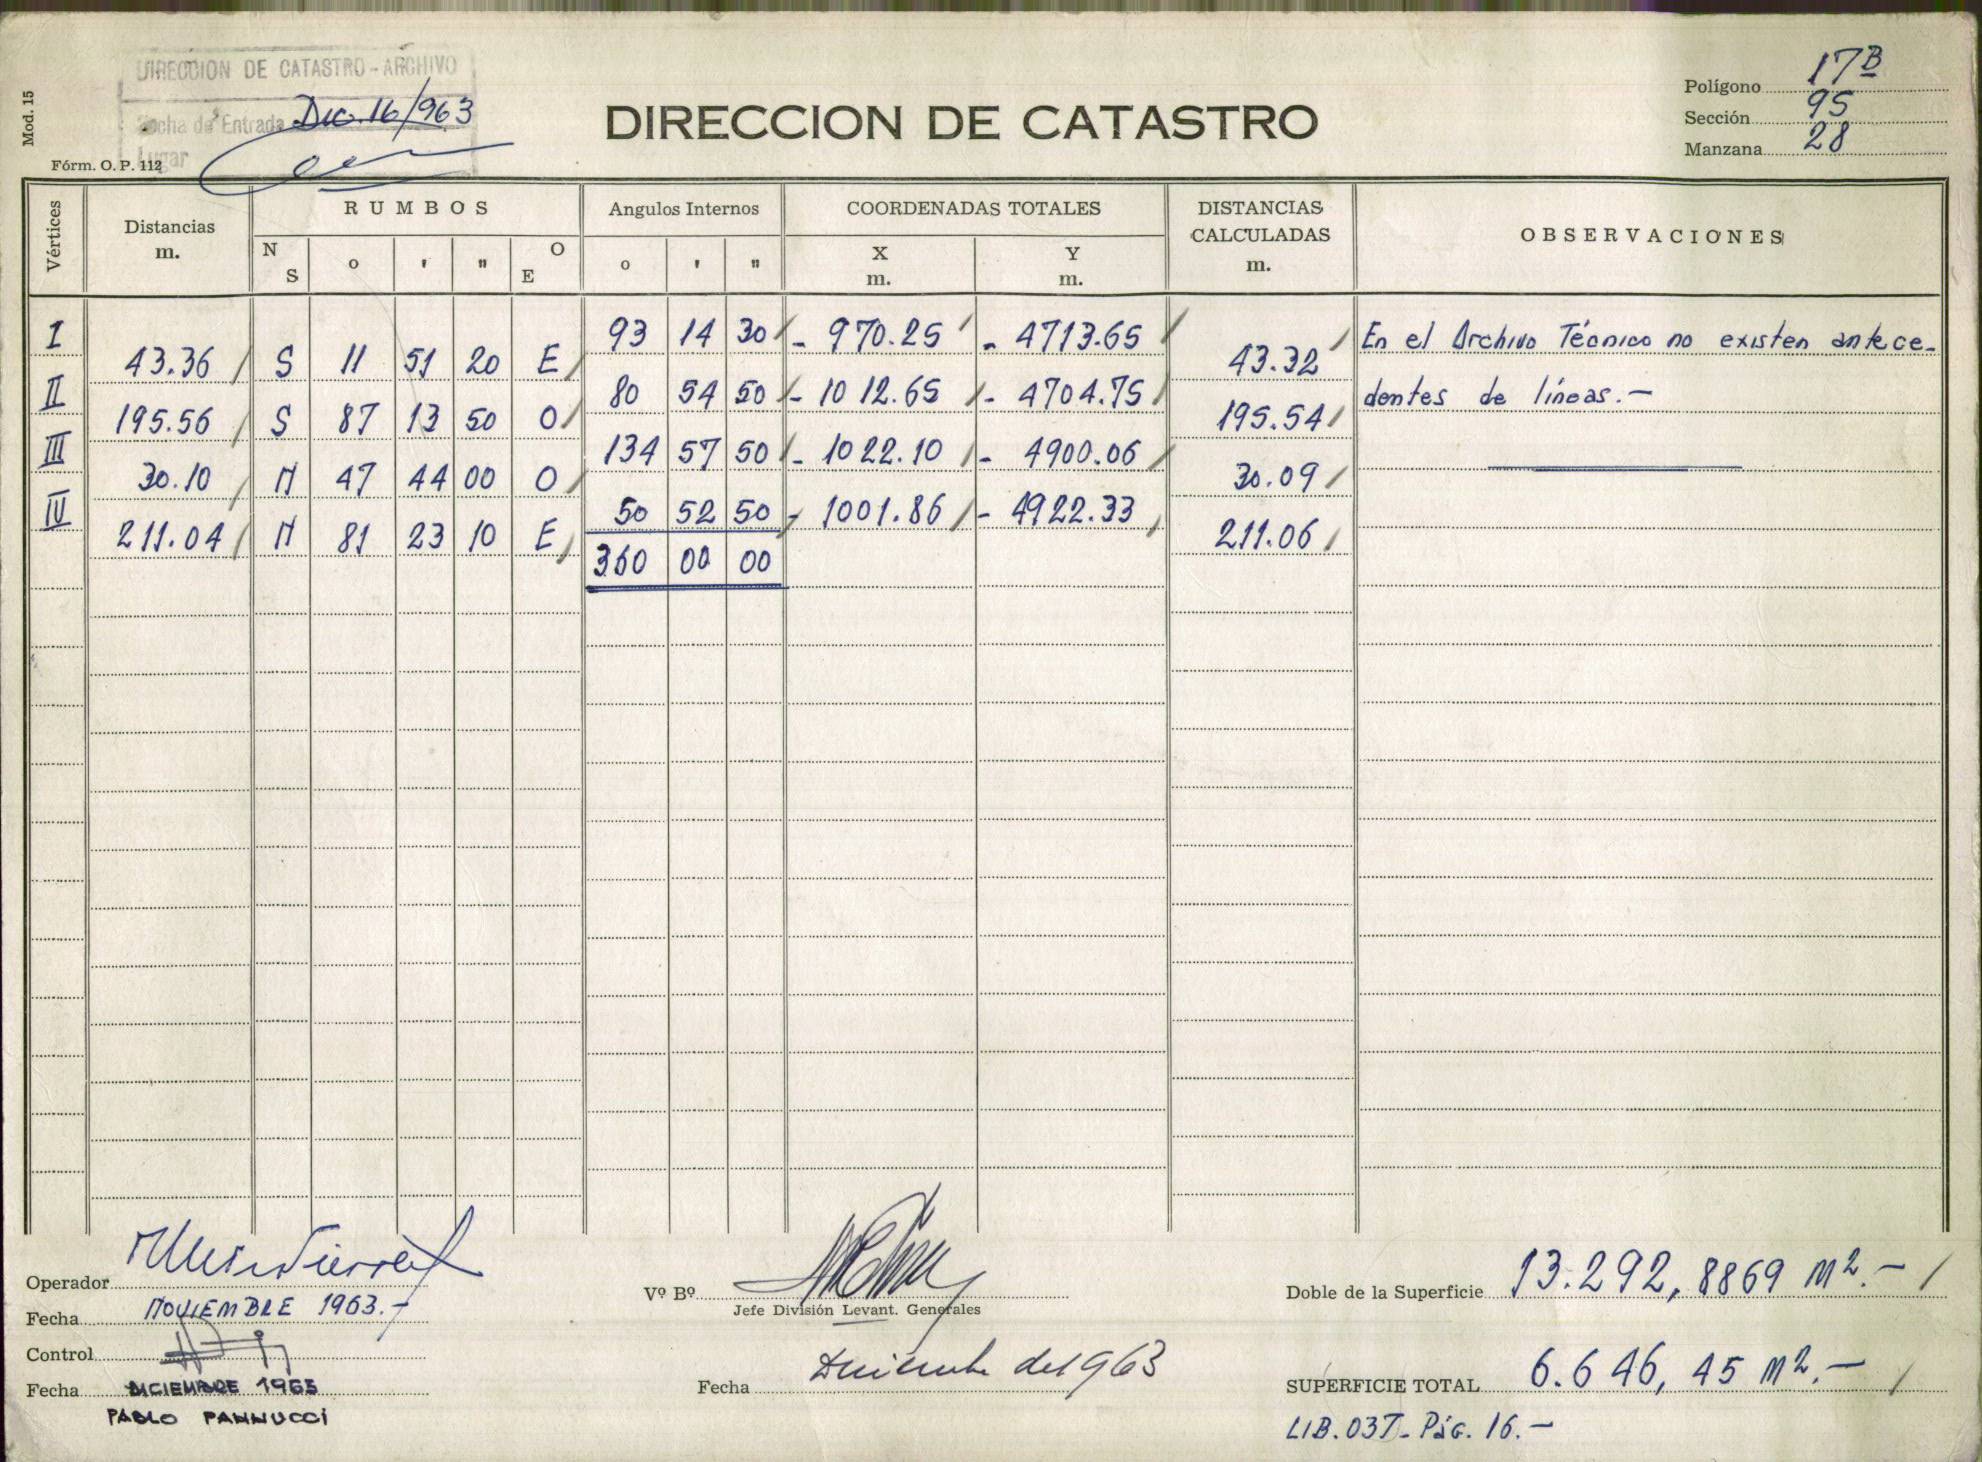 DIRECCION DE CATASTRO - ARCHIVO
Fecha de Entrada Dic. 16/963
Lugar
Mod. 15
Fórm. O. P. 112
DIRECCION DE CATASTRO
Polígono 17B
Sección 95
Manzana 28
Vértices
Distancias
m.
RUMBOS
N S
o ' "
O E
Angulos Internos
o ' "
COORDENADAS TOTALES
X
m.
Y
m.
DISTANCIAS
CALCULADAS
m.
OBSERVACIONES
I 93 14 30 - 970.25 - 4713.65
43.36 S 11 51 20 E 43.32
II 80 54 50 - 1012.65 - 4704.75
195.56 S 87 13 50 O 195.54
III 134 57 50 - 1022.10 - 4900.06
30.10 N 47 44 00 O 30.09
IV 50 52 50 - 1001.86 - 4922.33
211.04 N 81 23 10 E 211.06
360 00 00
En el Archivo Técnico no existen antece-
dentes de líneas.-
Operador
Fecha NOVIEMBRE 1963.-
Control
Fecha DICIEMBRE 1963
PABLO PANNUCCI
Vº Bº
Jefe División Levant. Generales
Fecha Diciembre de 1963
Doble de la Superficie 13.292,8869 M2.-
SUPERFICIE TOTAL 6.646,45 M2.-
LIB. 037- Pág. 16.-